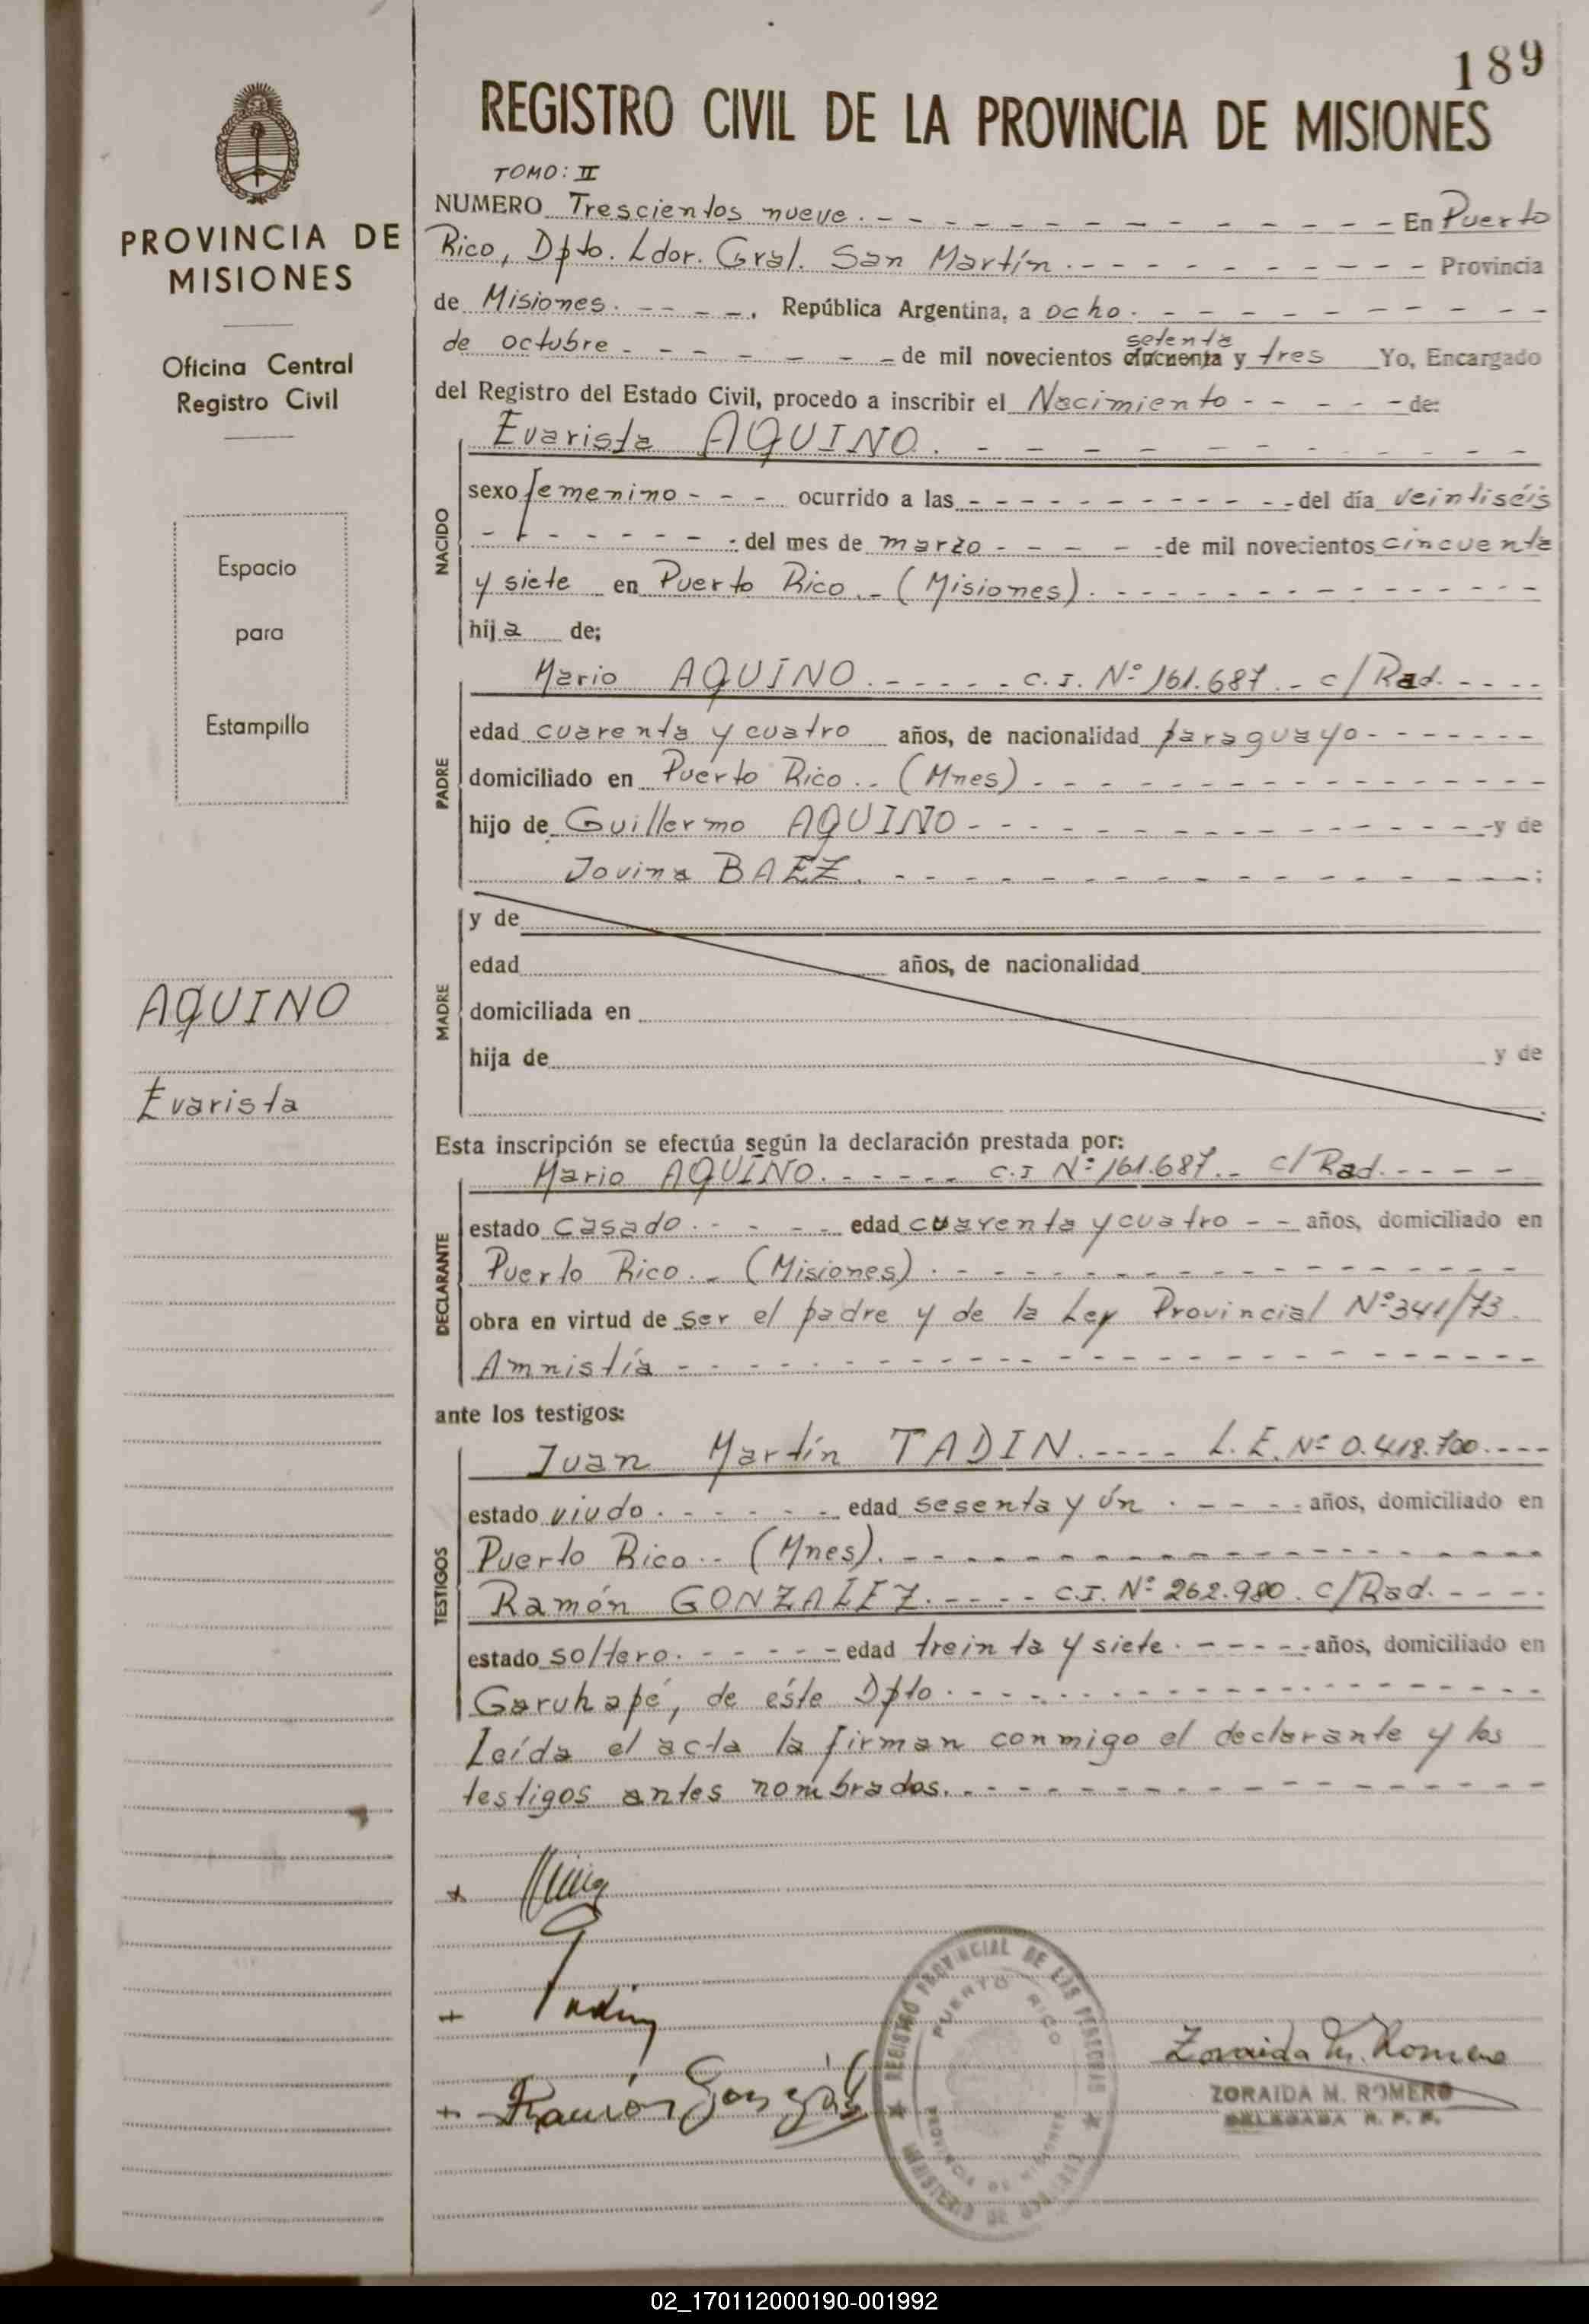 189
REGISTRO CIVIL DE LA PROVINCIA DE MISIONES
TOMO: II
NUMERO Trescientos nueve. - - - - - - - - - - - En Puerto
Rico, Dpto. Ldor. Gral. San Martín. - - - - - - - - - Provincia
de Misiones. - - - -. República Argentina, a ocho. - - - - - - - - -
setenta
de octubre - - - - - - - de mil novecientos cincuenta y tres Yo, Encargado
del Registro del Estado Civil, procedo a inscribir el Nacimiento - - - - - de:
Evarista AQUINO. - - - - - - - - - - -
NACIDO
sexo femenino - - - ocurrido a las - - - - - - - - - - - del día veintiséis
- - - - - - - del mes de marzo - - - - - de mil novecientos cincuenta
y siete en Puerto Rico. - (Misiones). - - - - - - - - - - - -
hija de;
Mario AQUINO. - - - - - C.I. Nº 161.687. - c/Rad. - - - -
PADRE
edad cuarenta y cuatro años, de nacionalidad paraguayo - - - - - - -
domiciliado en Puerto Rico. - (Mnes) - - - - - - - - - - - - -
hijo de Guillermo AQUINO - - - - - - - - - - - - - y de
Jovina BAEZ. - - - - - - - - - - - - - - - ;
MADRE
y de
edad años, de nacionalidad
domiciliada en
hija de y de
Esta inscripción se efectúa según la declaración prestada por:
Mario AQUINO. - - - - - C.I Nº 161.687. - c/Rad. - - - -
DECLARANTE
estado casado. - - - - - edad cuarenta y cuatro - - años, domiciliado en
Puerto Rico. - (Misiones). - - - - - - - - - - - - - - -
obra en virtud de ser el padre y de la Ley Provincial Nº 341/73.
Amnistía - - - - - - - - - - - - - - - - - - -
ante los testigos:
Juan Martín TADIN. - - - - L.E. Nº 0.418.700. - - -
TESTIGOS
estado viudo. - - - - - - edad sesenta y ún. - - - - años, domiciliado en
Puerto Rico. - (Mnes). - - - - - - - - - - - - - - - -
Ramón GONZALEZ. - - - - C.I. Nº 262.980. c/Rad. - - - -
estado soltero. - - - - - edad treinta y siete. - - - - - años, domiciliado en
Garuhapé, de éste Dpto. - - - - - - - - - - - - - - -
Leída el acta la firman conmigo el declarante y los
testigos antes nombrados. - - - - - - - - - - - - - - -
Tadin
Ramón González
REGISTRO PROVINCIAL DE LAS PERSONAS
PUERTO RICO
PROVINCIA DE MISIONES
MINISTERIO DE GOBIERNO
Zoraida M. Romero
ZORAIDA M. ROMERO
DELEGADA R. P. P.
PROVINCIA DE
MISIONES
Oficina Central
Registro Civil
Espacio
para
Estampilla
AQUINO
Evarista
02_170112000190-001992